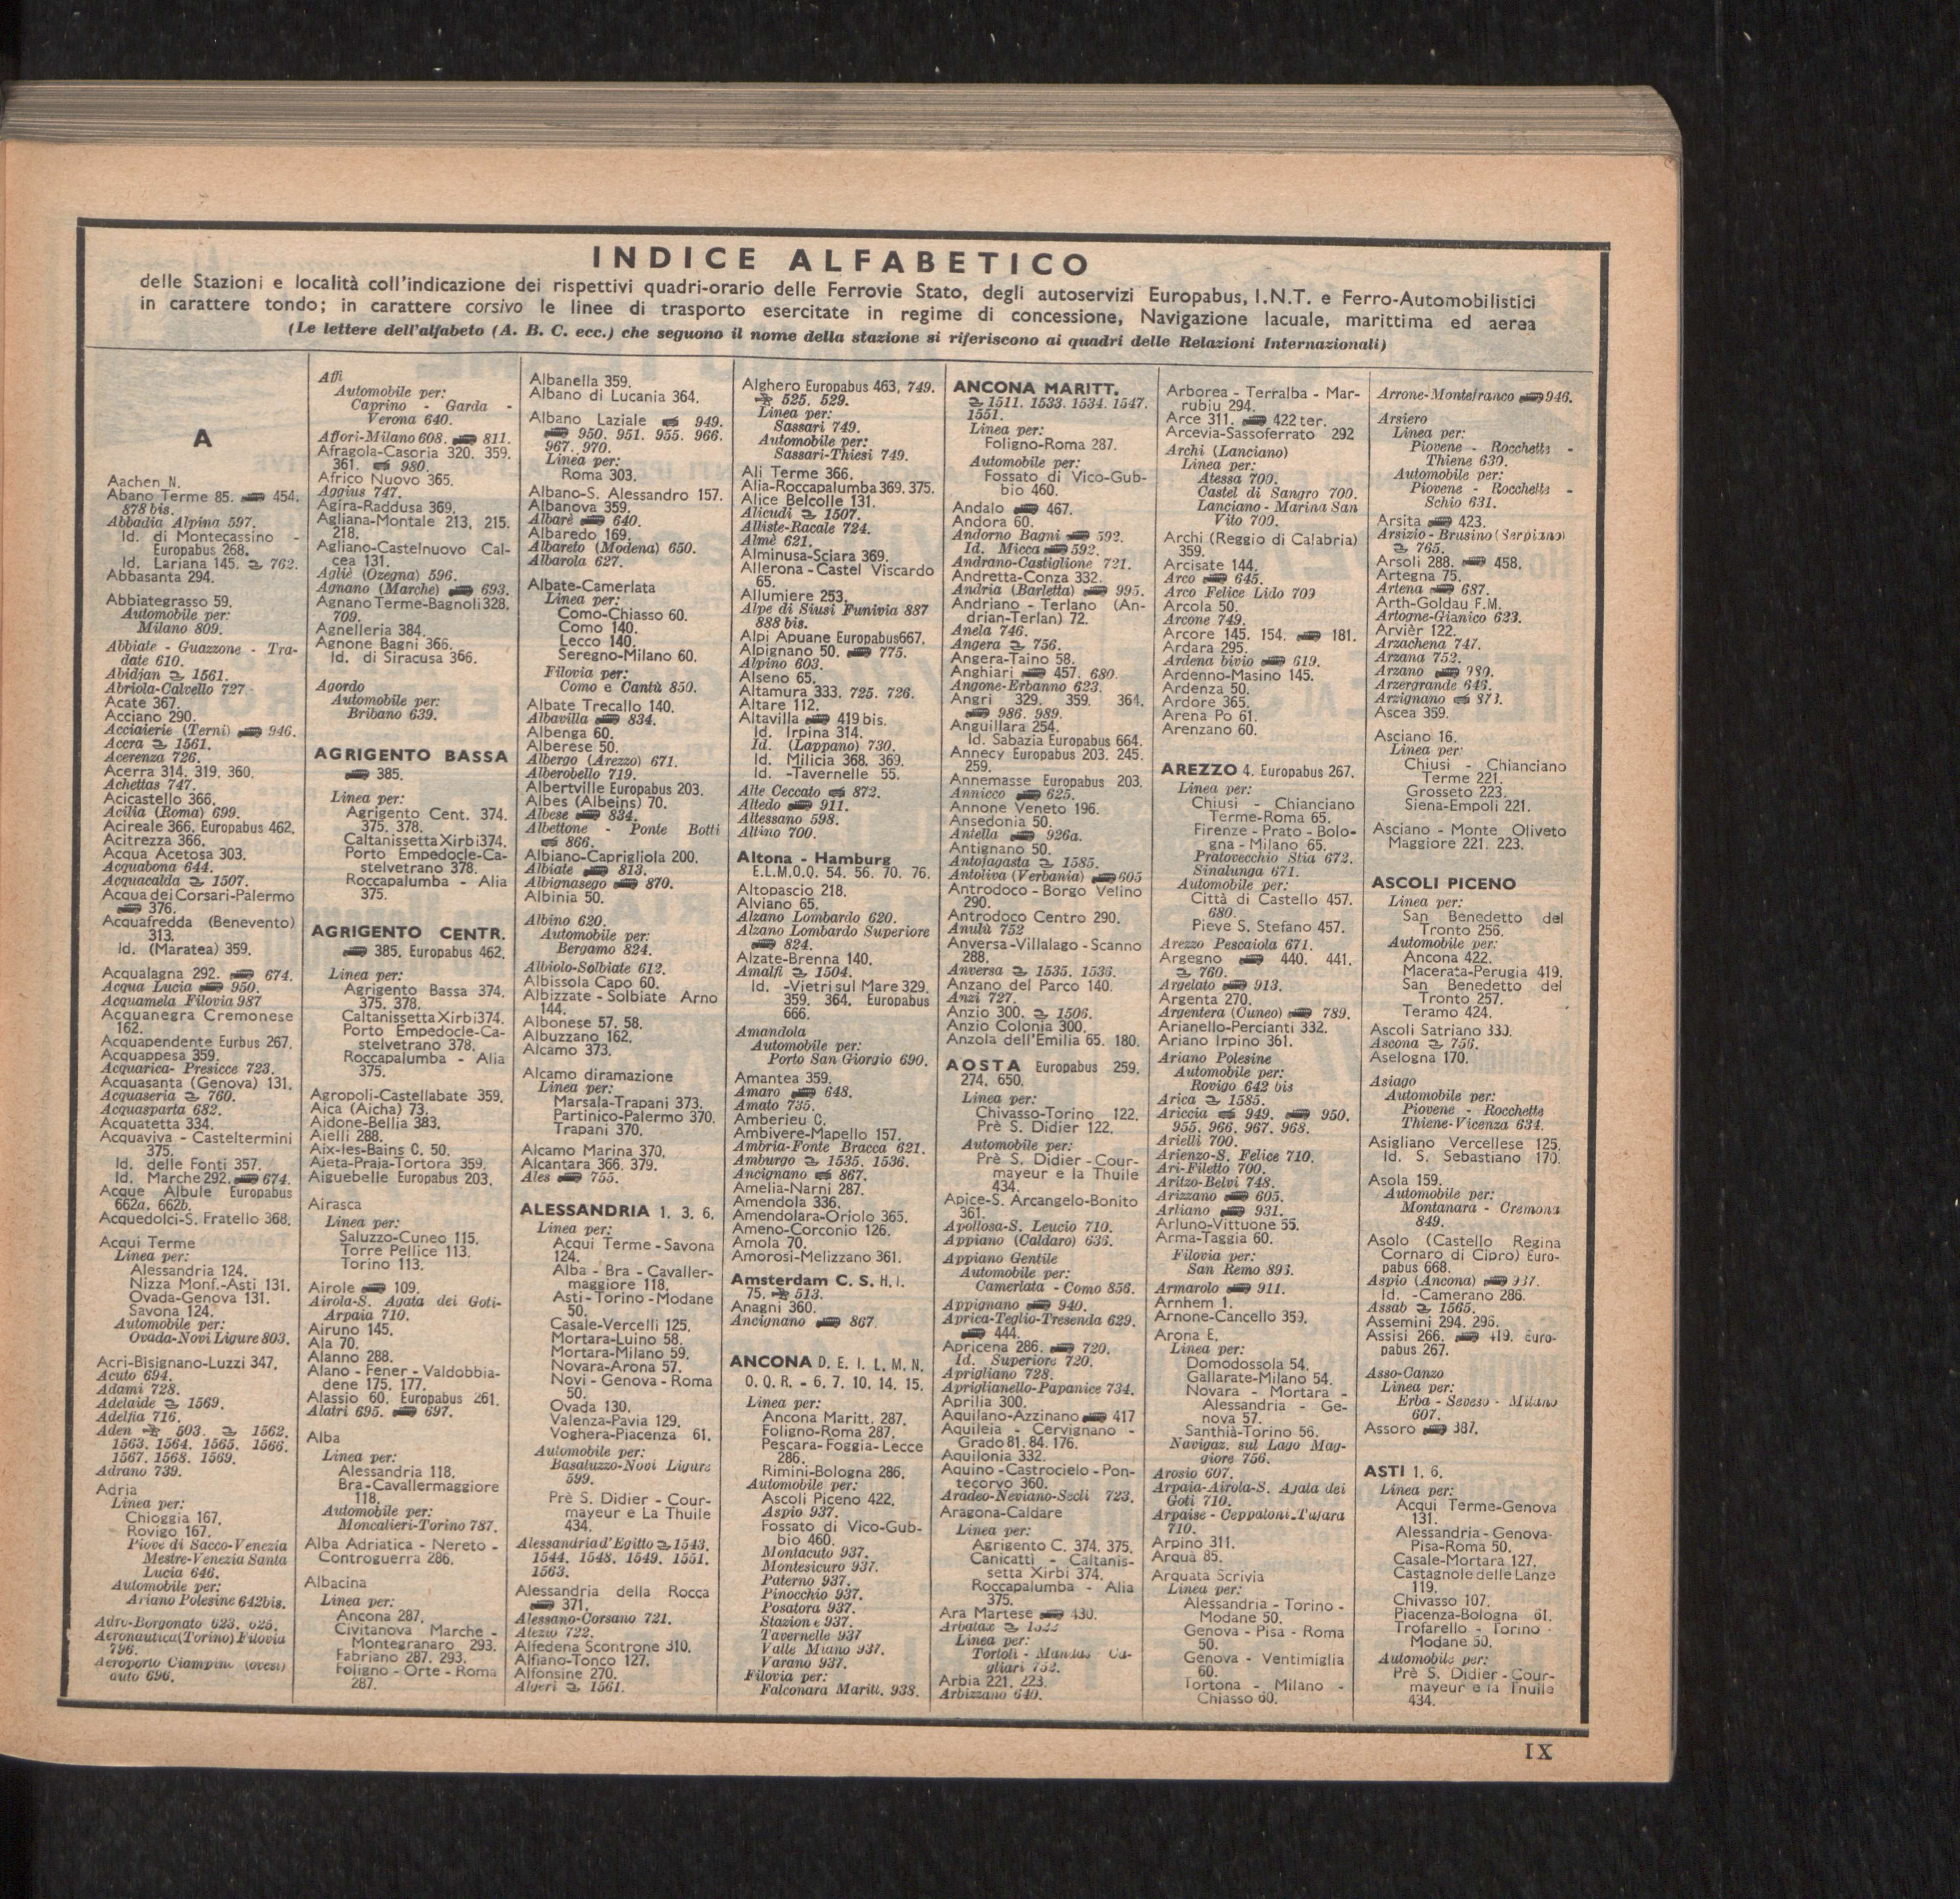 INDICE ALFABETICO
delle Stazioni e località coll'indicazione dei rispettivi quadri-orario delle Ferrovie Stato, degli autoservizi Europabus, I.N.T. e Ferro-Automobilistici
in carattere tondo; in carattere corsivo le linee di trasporto esercitate in regime di concessione, Navigazione lacuale, marittima ed aerea
(Le lettere dell'alfabeto (A. B. C. ecc.) che seguono il nome della stazione si riferiscono ai quadri delle Relazioni Internazionali)
A
Aachen N.
Abano Terme 85. 454.
878 bis.
Abbadia Alpina 597.
Id. di Montecassino -
Europabus 268.
Id. Lariana 145. 762.
Abbasanta 294.
Abbiategrasso 59.
Automobile per:
Milano 809.
Abbiate - Guazzone - Tra-
date 610.
Abidjan 1561.
Abriola-Calvello 727
Acate 367.
Acciano 290.
Acciaierie (Terni) 946.
Accra 1561.
Acerenza 726.
Acerra 314. 319. 360.
Achettas 747.
Acicastello 366.
Acilia (Roma) 699.
Acireale 366. Europabus 462.
Acitrezza 366.
Acqua Acetosa 303.
Acquabona 644.
Acquacalda 1507.
Acqua dei Corsari-Palermo
376.
Acquafredda (Benevento)
313.
Id. (Maratea) 359.
Acqualagna 292. 674.
Acqua Lucia 950.
Acquamela Filovia 987
Acquanegra Cremonese
162.
Acquapendente Eurbus 267.
Acquappesa 359.
Acquarica- Presicce 723.
Acquasanta (Genova) 131.
Acquaseria 760.
Acquasparta 682.
Acquatetta 334.
Acquaviva - Casteltermini
375.
Id. delle Fonti 357.
Id. Marche 292. 674.
Acque Albule Europabus
662a. 662b.
Acquedolci-S. Fratello 368.
Acqui Terme
Linea per:
Alessandria 124.
Nizza Monf.-Asti 131.
Ovada-Genova 131.
Savona 124.
Automobile per:
Ovada-Novi Ligure 803.
Acri-Bisignano-Luzzi 347.
Acuto 694.
Adami 728.
Adelaide 1569.
Adelfia 716.
Aden 503. 1562.
1563. 1564. 1565. 1566.
1567. 1568. 1569.
Adrano 739.
Adria
Linea per:
Chioggia 167.
Rovigo 167.
Piove di Sacco-Venezia
Mestre-Venezia Santa
Lucia 646.
Automobile per:
Ariano Polesine 642bis.
Adro-Borgonato 623. 625.
Aeronautica (Torino) Filovia
796.
Aeroporto Ciampino (ovest)
auto 696.
Affi
Automobile per:
Caprino - Garda -
Verona 640.
Affori-Milano 608. 811.
Afragola-Casoria 320. 359.
361. 980.
Africo Nuovo 365.
Aggius 747.
Agira-Raddusa 369.
Agliana-Montale 213. 215.
218.
Agliano-Castelnuovo Cal-
cea 131.
Agliè (Ozegna) 596.
Agnano (Marche) 693.
Agnano Terme-Bagnoli 328.
709.
Agnelleria 384.
Agnone Bagni 366.
Id. di Siracusa 366.
Agordo
Automobile per:
Bribano 639.
AGRIGENTO BASSA
385.
Linea per:
Agrigento Cent. 374.
375. 378.
Caltanissetta Xirbi 374.
Porto Empedocle-Ca-
stelvetrano 378.
Roccapalumba - Alia
375.
AGRIGENTO CENTR.
385. Europabus 462.
Linea per:
Agrigento Bassa 374.
375. 378.
Caltanissetta Xirbi 374.
Porto Empedocle-Ca-
stelvetrano 378.
Roccapalumba - Alia
375.
Agropoli-Castellabate 359.
Aica (Aicha) 73.
Aidone-Bellia 383.
Aielli 288.
Aix-les-Bains C. 50.
Aieta-Praja-Tortora 359.
Aiguebelle Europabus 203.
Airasca
Linea per:
Saluzzo-Cuneo 115.
Torre Pellice 113.
Torino 113.
Airole 109.
Airola-S. Agata dei Goti-
Arpaia 710.
Airuno 145.
Ala 70.
Alanno 288.
Alano - Fener - Valdobbia-
dene 175. 177.
Alassio 60. Europabus 261.
Alatri 695. 697.
Alba
Linea per:
Alessandria 118.
Bra-Cavallermaggiore
118.
Automobile per:
Moncalieri-Torino 787.
Alba Adriatica - Nereto -
Controguerra 286.
Albacina
Linea per:
Ancona 287.
Civitanova Marche -
Montegranaro 293.
Fabriano 287. 293.
Foligno - Orte - Roma
287.
Albanella 359.
Albano di Lucania 364.
Albano Laziale 949.
950. 951. 955. 966.
967. 970.
Linea per:
Roma 303.
Albano-S. Alessandro 157.
Albanova 359.
Albarè 640.
Albaredo 169.
Albareto (Modena) 650.
Albarola 627.
Albate-Camerlata
Linea per:
Como-Chiasso 60.
Como 140.
Lecco 140.
Seregno-Milano 60.
Filovia per:
Como e Cantù 850.
Albate Trecallo 140.
Albavilla 834.
Albenga 60.
Alberese 50.
Albergo (Arezzo) 671.
Alberobello 719.
Albertville Europabus 203.
Albes (Albeins) 70.
Albese 834.
Albettone - Ponte Botti
866.
Albiano-Caprigliola 200.
Albiate 813.
Albignasego 870.
Albinia 50.
Albino 620.
Automobile per:
Bergamo 824.
Albiolo-Solbiate 612.
Albissola Capo 60.
Albizzate - Solbiate Arno
144.
Albonese 57. 58.
Albuzzano 162.
Alcamo 373.
Alcamo diramazione
Linea per:
Marsala-Trapani 373.
Partinico-Palermo 370.
Trapani 370.
Alcamo Marina 370.
Alcantara 366. 379.
Ales 755.
ALESSANDRIA 1. 3. 6.
Linea per:
Acqui Terme - Savona
124.
Alba - Bra - Cavaller-
maggiore 118.
Asti - Torino - Modane
50.
Casale-Vercelli 125.
Mortara-Luino 58.
Mortara-Milano 59.
Novara-Arona 57.
Novi - Genova - Roma
50.
Ovada 130.
Valenza-Pavia 129.
Voghera-Piacenza 61.
Automobile per:
Basaluzzo-Novi Ligure
599.
Prè S. Didier - Cour-
mayeur e La Thuile
434.
Alessandria d'Egitto 1543.
1544. 1548. 1549. 1551.
1563.
Alessandria della Rocca
371.
Alessano-Corsano 721.
Alezio 722.
Alfedena Scontrone 310.
Alfiano-Tonco 127.
Alfonsine 270.
Algeri 1561.
Alghero Europabus 463. 749.
525. 529.
Linea per:
Sassari 749.
Automobile per:
Sassari-Thiesi 749.
Ali Terme 366.
Alia-Roccapalumba 369. 375.
Alice Belcolle 131.
Alicudi 1507.
Alliste-Racale 724.
Almè 621.
Alminusa-Sciara 369.
Allerona - Castel Viscardo
65.
Allumiere 253.
Alpe di Siusi Funivia 887
888 bis.
Alpi Apuane Europabus 667.
Alpignano 50. 775.
Alpino 603.
Alseno 65.
Altamura 333. 725. 726.
Altare 112.
Altavilla 419 bis.
Id. Irpina 314.
Id. (Lappano) 730.
Id. Milicia 368. 369.
Id. -Tavernelle 55.
Alte Ceccato 872.
Altedo 911.
Altessano 598.
Altino 700.
Altona - Hamburg
E.L.M.O.Q. 54. 56. 70. 76.
Altopascio 218.
Alviano 65.
Alzano Lombardo 620.
Alzano Lombardo Superiore
824.
Alzate-Brenna 140.
Amalfi 1504.
Id. -Vietri sul Mare 329.
359. 364. Europabus
666.
Amandola
Automobile per:
Porto San Giorgio 690.
Amantea 359.
Amaro 648.
Amato 735.
Amberieu C.
Ambivere-Mapello 157.
Ambria-Fonte Bracca 621.
Amburgo 1535. 1536.
Ancignano 867.
Amelia-Narni 287.
Amendola 336.
Amendolara-Oriolo 365.
Ameno-Corconio 126.
Amola 70.
Amorosi-Melizzano 361.
Amsterdam C. S. H. I.
75. 513.
Anagni 360.
Ancignano 867.
ANCONA D. E. I. L. M. N.
O. Q. R. - 6. 7. 10. 14. 15.
Linea per:
Ancona Maritt. 287.
Foligno-Roma 287.
Pescara-Foggia-Lecce
286.
Rimini-Bologna 286.
Automobile per:
Ascoli Piceno 422.
Aspio 937.
Fossato di Vico-Gub-
bio 460.
Montacuto 937.
Montesicuro 937.
Paterno 937.
Pinocchio 937.
Posatora 937.
Stazione 937.
Tavernelle 937
Valle Miano 937.
Varano 937.
Filovia per:
Falconara Maritt. 938.
ANCONA MARITT.
1511. 1533. 1534. 1547.
1551.
Linea per:
Foligno-Roma 287.
Automobile per:
Fossato di Vico-Gub-
bio 460.
Andalo 467.
Andora 60.
Andorno Bagni 592.
Id. Micca 592.
Andrano-Castiglione 721.
Andretta-Conza 332.
Andria (Barletta) 995.
Andriano - Terlano (An-
drian-Terlan) 72.
Anela 746.
Angera 756.
Angera-Taino 58.
Anghiari 457. 680.
Angone-Erbanno 623.
Angri 329. 359. 364.
986. 989.
Anguillara 254.
Id. Sabazia Europabus 664.
Annecy Europabus 203. 245.
259.
Annemasse Europabus 203.
Annicco 625.
Annone Veneto 196.
Ansedonia 50.
Antella 926a.
Antignano 50.
Antofagasta 1585.
Antoliva (Verbania) 605
Antrodoco - Borgo Velino
290.
Antrodoco Centro 290.
Anulù 752
Anversa-Villalago - Scanno
288.
Anversa 1535. 1536.
Anzano del Parco 140.
Anzi 727.
Anzio 300. 1506.
Anzio Colonia 300.
Anzola dell'Emilia 65. 180.
AOSTA Europabus 259.
274. 650.
Linea per:
Chivasso-Torino 122.
Prè S. Didier 122.
Automobile per:
Prè S. Didier - Cour-
mayeur e la Thuile
434.
Apice-S. Arcangelo-Bonito
361.
Apollosa-S. Leucio 710.
Appiano (Caldaro) 636.
Appiano Gentile
Automobile per:
Camerlata - Como 856.
Appignano 940.
Aprica-Teglio-Tresenda 629.
444.
Apricena 286. 720.
Id. Superiore 720.
Aprigliano 728.
Apriglianello-Papanice 734.
Aprilia 300.
Aquilano-Azzinano 417
Aquileia - Cervignano -
Grado 81. 84. 176.
Aquilonia 332.
Aquino - Castrocielo - Pon-
tecorvo 360.
Aradeo-Neviano-Seclì 723.
Aragona-Caldare
Linea per:
Agrigento C. 374. 375.
Canicattì - Caltanis-
setta Xirbi 374.
Roccapalumba - Alia
375.
Ara Martese 430.
Arbatax
Linea per:
Tortolì - Mandas - Ca-
gliari 752.
Arbia 221. 223.
Arbizzano 640.
Arborea - Terralba - Mar-
rubiu 294.
Arce 311. 422 ter.
Arcevia-Sassoferrato 292
Archi (Lanciano)
Linea per:
Atessa 700.
Castel di Sangro 700.
Lanciano - Marina San
Vito 700.
Archi (Reggio di Calabria)
359.
Arcisate 144.
Arco 645.
Arco Felice Lido 709
Arcola 50.
Arcone 749.
Arcore 145. 154. 181.
Ardara 295.
Ardena bivio 619.
Ardenno-Masino 145.
Ardenza 50.
Ardore 365.
Arena Po 61.
Arenzano 60.
AREZZO 4. Europabus 267.
Linea per:
Chiusi - Chianciano
Terme-Roma 65.
Firenze - Prato - Bolo-
gna - Milano 65.
Pratovecchio Stia 672.
Sinalunga 671.
Automobile per:
Città di Castello 457.
680.
Pieve S. Stefano 457.
Arezzo Pescaiola 671.
Argegno 440. 441.
760.
Argelato 913.
Argenta 270.
Argentera (Cuneo) 789.
Arianello-Percianti 332.
Ariano Irpino 361.
Ariano Polesine
Automobile per:
Rovigo 642 bis
Arica 1585.
Ariccia 949. 950.
955. 966. 967. 968.
Arielli 700.
Arienzo-S. Felice 710.
Ari-Filetto 700.
Aritzo-Belvì 748.
Arizzano 605.
Arliano 931.
Arluno-Vittuone 55.
Arma-Taggia 60.
Filovia per:
San Remo 893.
Armarolo 911.
Arnhem 1.
Arnone-Cancello 359.
Arona E.
Linea per:
Domodossola 54.
Gallarate-Milano 54.
Novara - Mortara -
Alessandria - Ge-
nova 57.
Santhià-Torino 56.
Navigaz. sul Lago Mag-
giore 756.
Arosio 607.
Arpaia-Airola-S. Agata dei
Goti 710.
Arpaise - Ceppaloni-Tufara
710.
Arpino 311.
Arquà 85.
Arquata Scrivia
Linea per:
Alessandria - Torino -
Modane 50.
Genova - Pisa - Roma
50.
Genova - Ventimiglia
60.
Tortona - Milano -
Chiasso 60.
Arrone-Montefranco 946.
Arsiero
Linea per:
Piovene - Rocchette -
Thiene 630.
Automobile per:
Piovene - Rocchette -
Schio 631.
Arsita 423.
Arsizio - Brusino (Serpiano)
765.
Arsoli 288. 458.
Artegna 75.
Artena 687.
Arth-Goldau F.M.
Artogne-Gianico 623.
Arvièr 122.
Arzachena 747.
Arzana 752.
Arzano 980.
Arzergrande 646.
Arzignano 873.
Ascea 359.
Asciano 16.
Linea per:
Chiusi - Chianciano
Terme 221.
Grosseto 223.
Siena-Empoli 221.
Asciano - Monte Oliveto
Maggiore 221. 223.
ASCOLI PICENO
Linea per:
San Benedetto del
Tronto 256.
Automobile per:
Ancona 422.
Macerata-Perugia 419.
San Benedetto del
Tronto 257.
Teramo 424.
Ascoli Satriano 330.
Ascona 756.
Aselogna 170.
Asiago
Automobile per:
Piovene - Rocchette
Thiene-Vicenza 634.
Asigliano Vercellese 125.
Id. S. Sebastiano 170.
Asola 159.
Automobile per:
Montanara - Cremona
849.
Asolo (Castello Regina
Cornaro di Cipro) Euro-
pabus 668.
Aspio (Ancona) 937.
Id. -Camerano 286.
Assab 1565.
Assemini 294. 296.
Assisi 266. 419. Euro-
pabus 267.
Asso-Canzo
Linea per:
Erba - Seveso - Milano
607.
Assoro 387.
ASTI 1. 6.
Linea per:
Acqui Terme-Genova
131.
Alessandria - Genova-
Pisa-Roma 50.
Casale-Mortara 127.
Castagnole delle Lanze
119.
Chivasso 107.
Piacenza-Bologna 61.
Trofarello - Torino -
Modane 50.
Automobile per:
Prè S. Didier - Cour-
mayeur e la Thuile
434.
IX